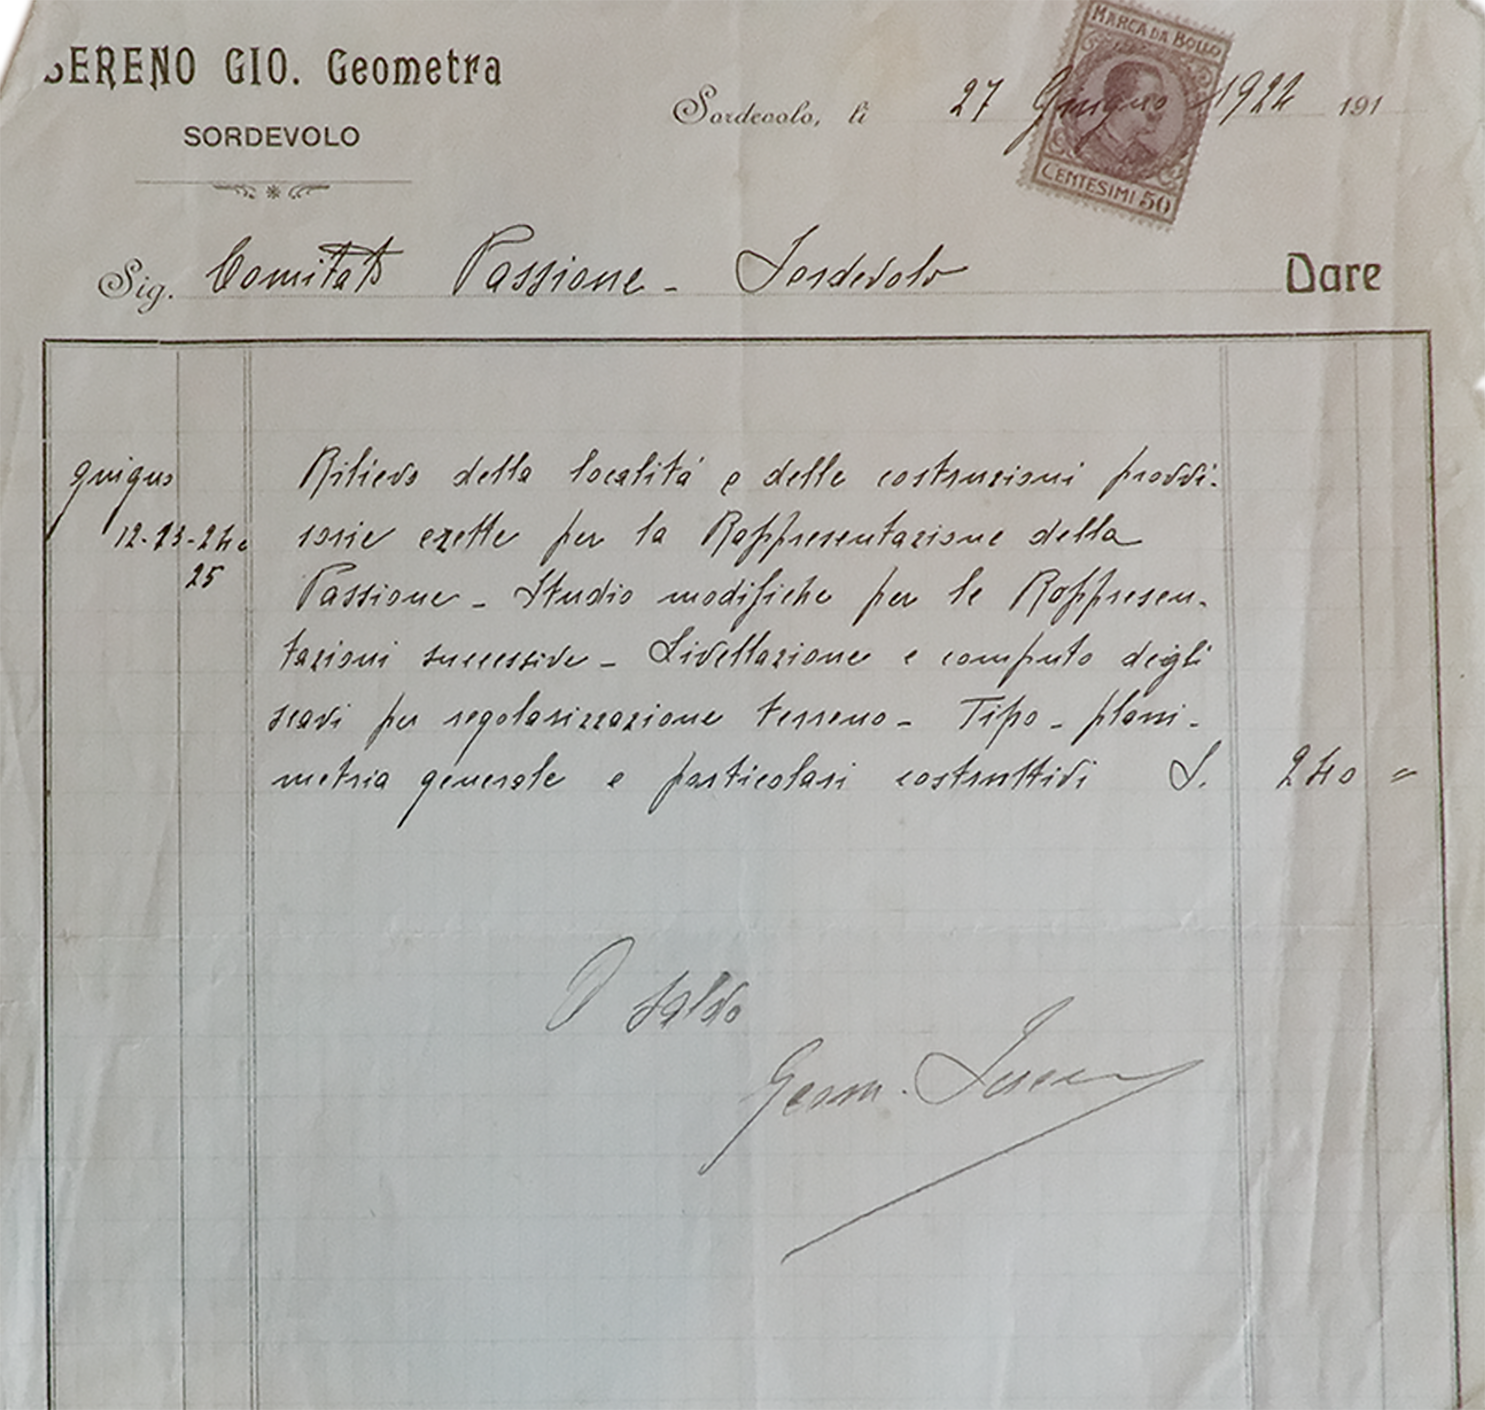 SERENO GIO. Geometra
SORDEVOLO
Sordevolo, li 27 Giugno 1924 191
MARCA DA BOLLO
CENTESIMI 50
Sig. Comitato Passione - Sordevolo Dare
giugno Rilievo della località e delle costruzioni provvi-
12-23-24 e sorie erette per la Rappresentazione della
25 Passione - Studio modifiche per le Rappresen-
tazioni successive - Livellazione e computo degli
scavi per regolarizzazione terreno - Tipo - plani-
metria generale e particolari costruttivi L. 240 =
A saldo
Geom. Sereno